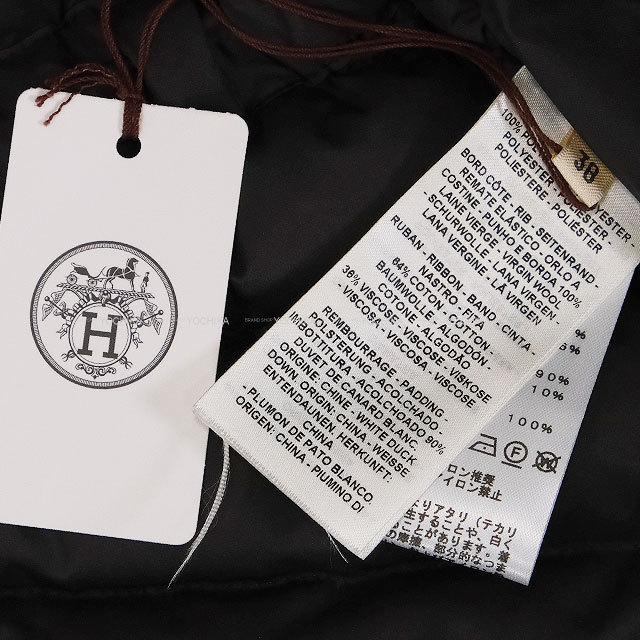 H
YOCHIKA
38
100%
POLYESTER - POLYESTER
POLIESTERE - POLIÉSTER
BORD CÔTE - RIB - SEITENRAND -
REMATE ELÁSTICO - ORLO A
COSTINE - PUNHO E BORDA 100%
LAINE VIERGE - VIRGIN WOOL
- SCHURWOLLE - LANA VIRGEN -
LANA VERGINE - LÃ VIRGEN
RUBAN - RIBBON - BAND - CINTA -
NASTRO - FITA
64% COTON - COTTON -
BAUMWOLLE - ALGODÓN -
COTONE - ALGODÃO
36% VISCOSE - VISCOSE - VISKOSE
- VISCOSA - VISCOSA - VISCOSE
REMBOURRAGE - PADDING -
POLSTERUNG - ACOLCHADO -
IMBOTTITURA - ACOLCHOADO 90%
DUVET DE CANARD BLANC.
ORIGINE: CHINE - WHITE DUCK
DOWN. ORIGIN: CHINA - WEISSE
ENTENDAUNEN. HERKUNFT:
CHINA
- PLUMON DE PATO BLANCO.
ORIGEN: CHINA - PIUMINO DI
90%
10%
100%
ロン推奨
イロン禁止
アタリ（テカリ